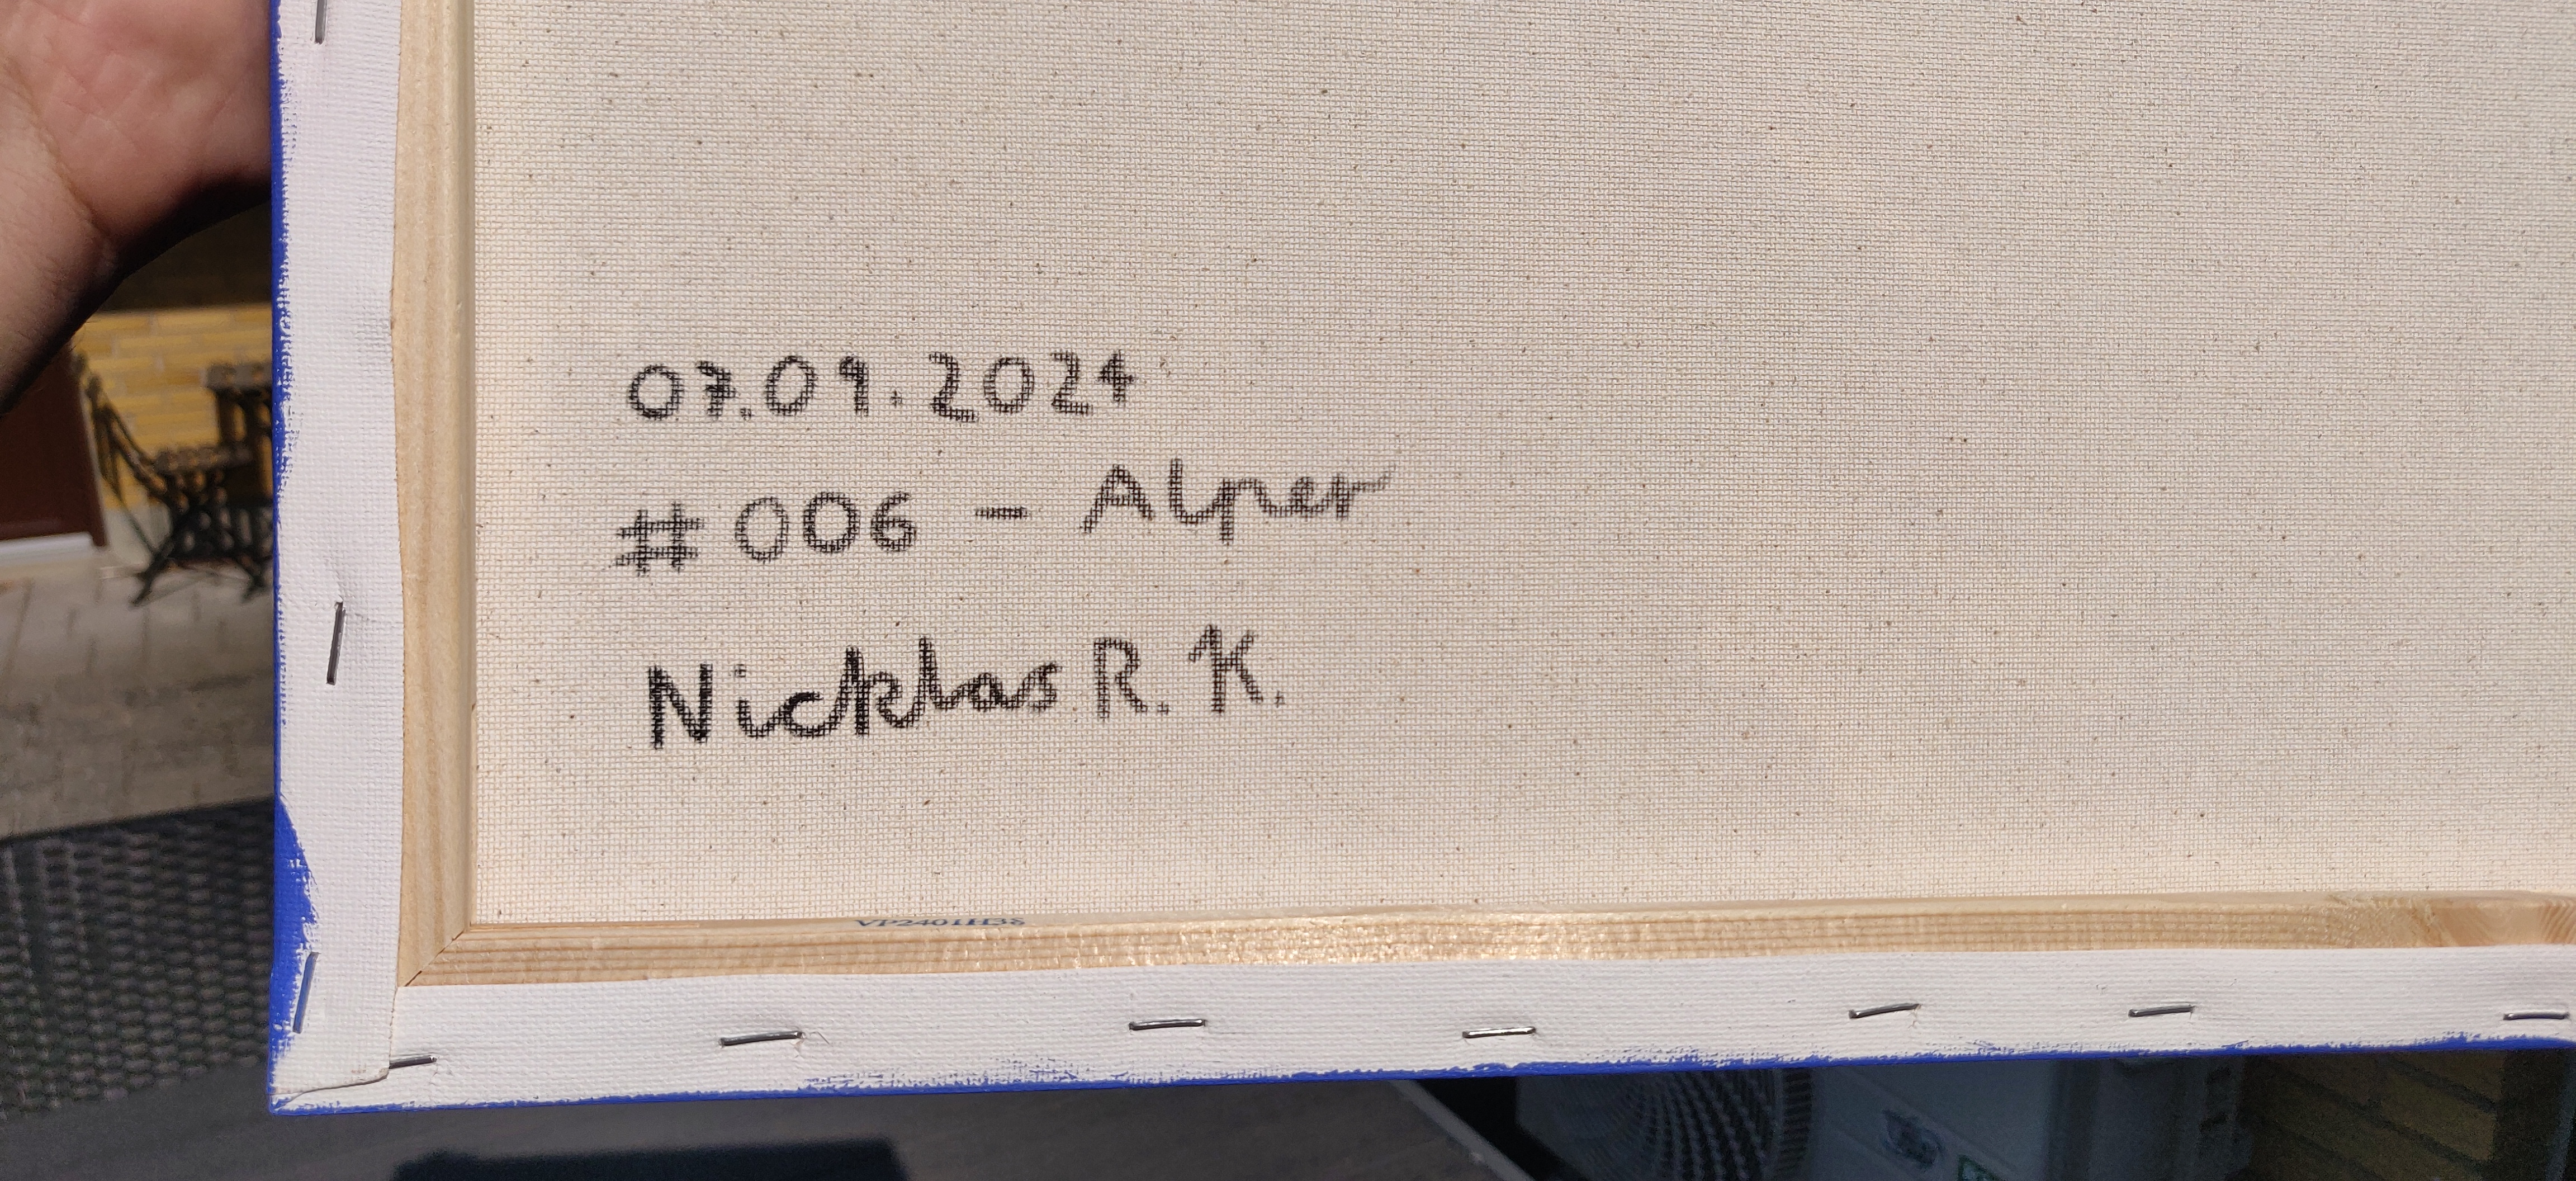 07.09.2024
#006 - Alper
Nicklas R. K.
VP2401H38